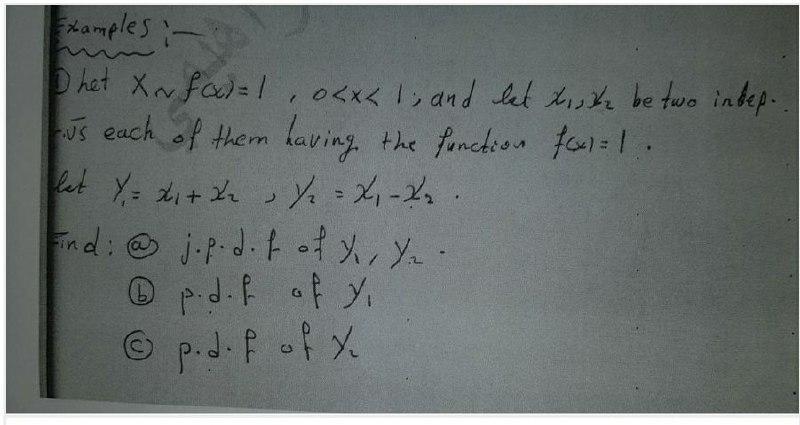 Examples :-
① Let X ~ f(x) = 1 , 0<x<1 ; and let x₁, x₂ be two indep.
r.v̄s each of them having the function f(x) = 1 .
let Y₁ = x₁ + x₂ , Y₂ = x₁ - x₂ .
Find : ⓐ j.p.d.f of Y₁, Y₂ .
ⓑ p.d.f of Y₁
ⓒ p.d.f of Y₂